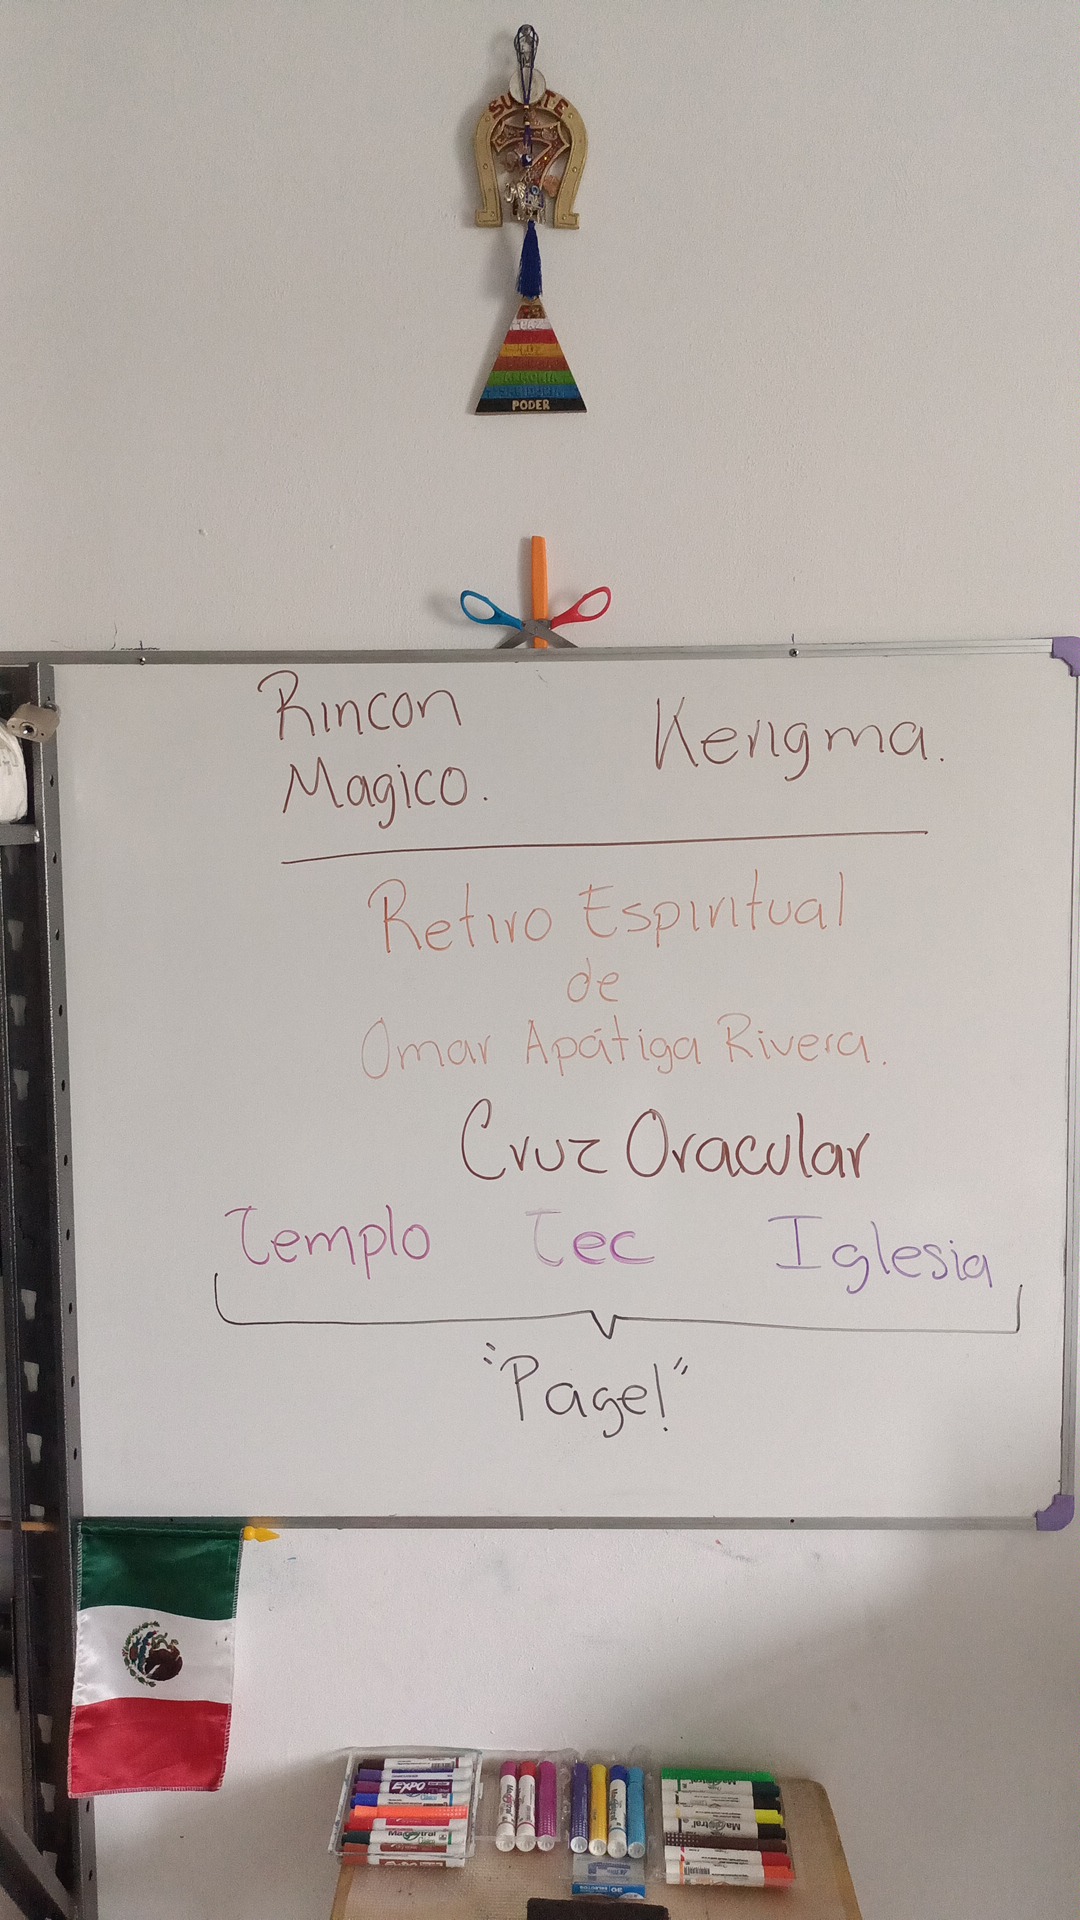 SUERTE
7
PODER
Rincon
Magico.
Kerigma.
Retiro Espiritual
de
Omar Apátiga Rivera.
Cruz Oracular
Templo Tec Iglesia
"Page!"
EXPO
Magistral
Magistral